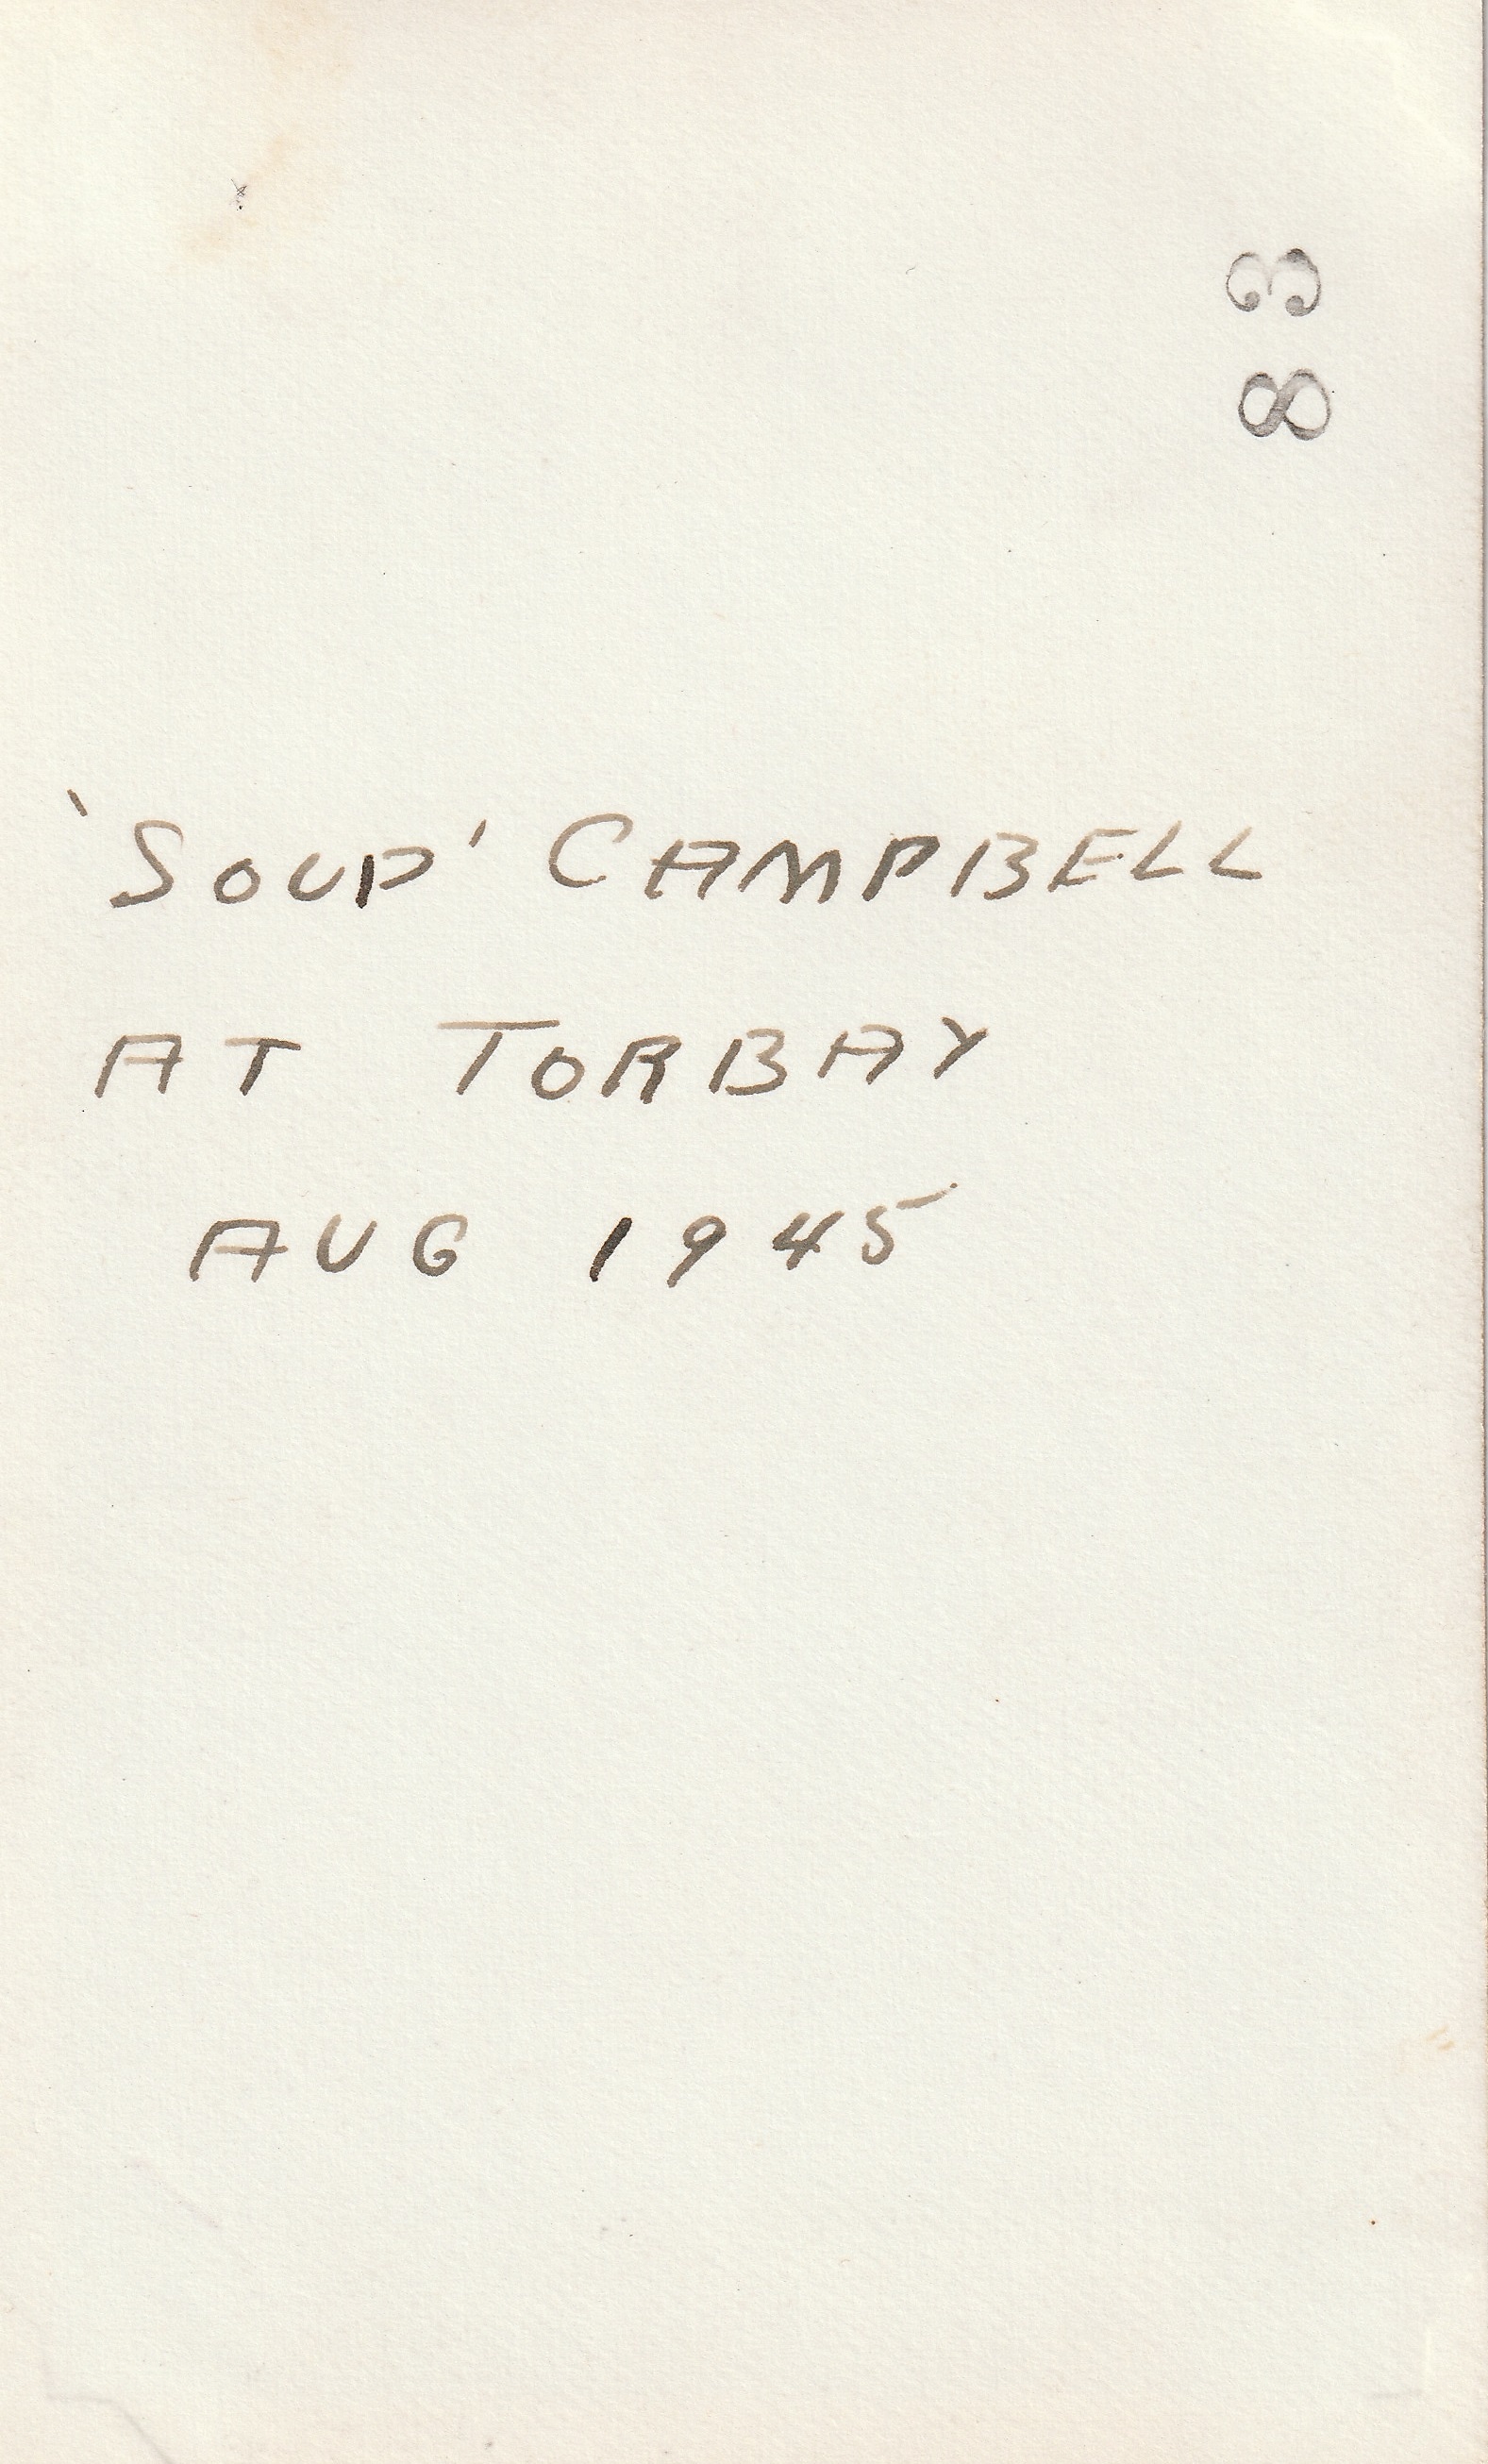 83
'SOUP' CAMPBELL
AT TORBAY
AUG 1945